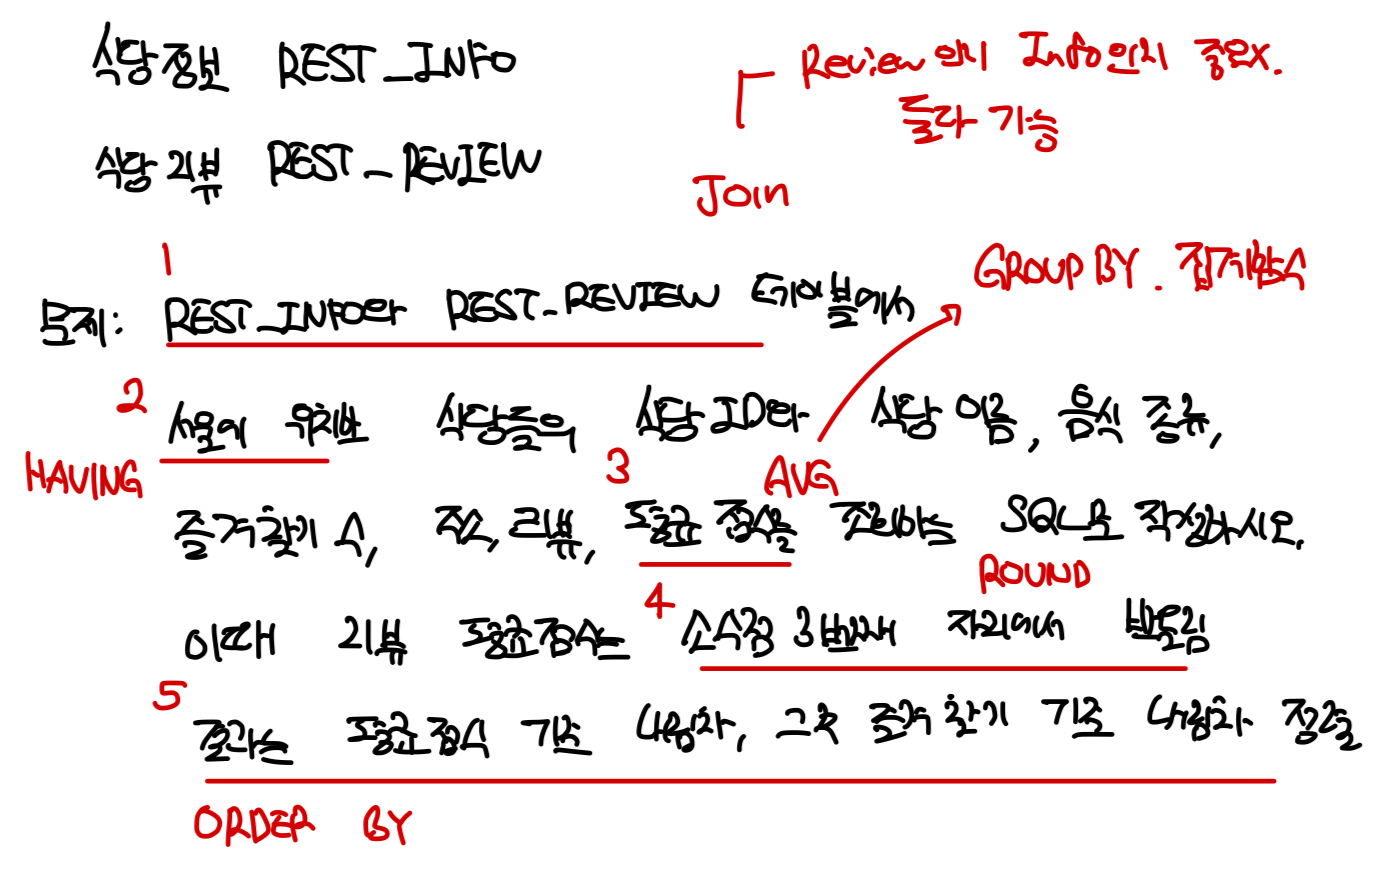 식당 정보 REST_INFO
Review 인지 Info인지 중요X.
둘다 가능
식당 리뷰 REST_REVIEW
Join
1
GROUP BY. 집계함수
문제: REST_INFO와 REST_REVIEW 테이블에서
2
서울에 위치한 식당들의 식당 ID와 식당 이름, 음식 종류,
HAVING
3
AVG
즐겨찾기 수, 주소, 리뷰, 평균 점수를 조회하는 SQL문 작성하시오.
ROUND
4
이때 리뷰 평균점수는 소수점 3번째 자리에서 반올림
5
결과는 평균점수 기준 내림차, 그후 즐겨찾기 기준 내림차 정렬
ORDER BY